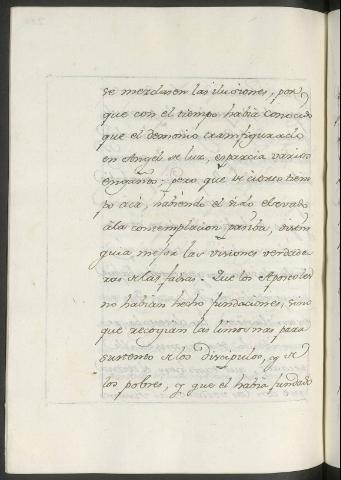 se mezclasen las ilusiones, por
que con el tiempo habia conocido
que el demonio transfigurado
en Angel de luz, esparcia varios
engaños; pero que de cierto tiem
po acá, habiendo el elevado
á la contemplacion pasiba, distin
guia mejor las visiones verdade
ras de las falsas. Que los Apostoles
no habian hecho fundaciones, sino
que recogian las limosnas para
sustento de los Discipulos, y de
los pobres, y que el habia fundado